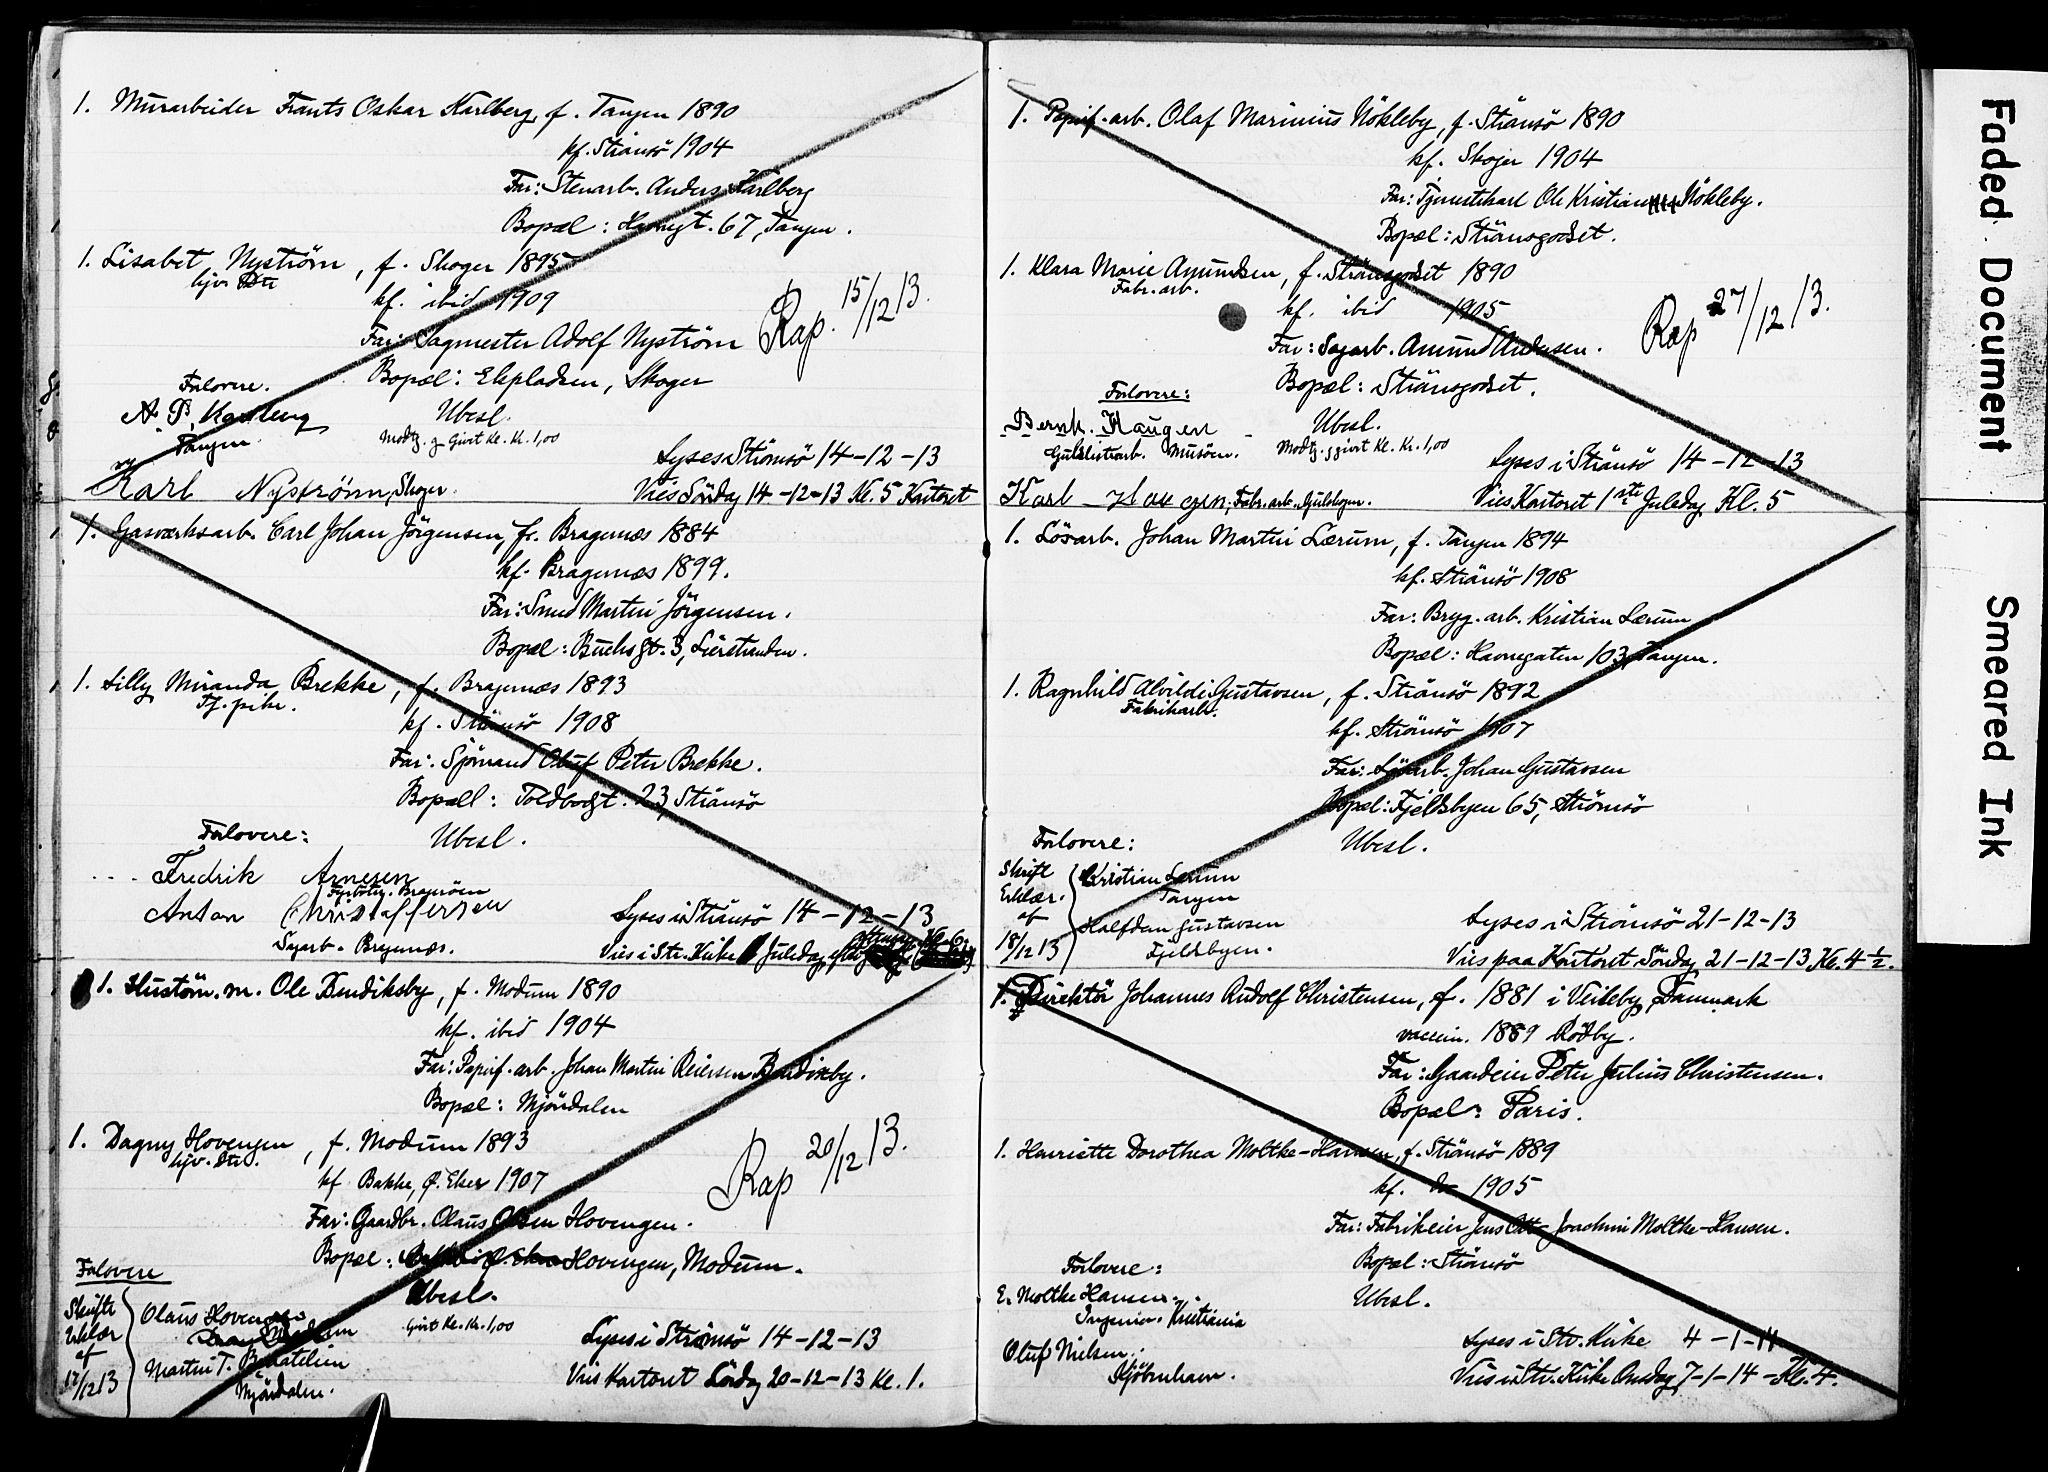 1. Murarbeider Frants Oskar Karlberg, f. Tangen 1890
kf. Strömsö 1904
Far: Stenarb. Anders Karlberg
Bopæl: Havnegt. 67, Tangen.
1. Lisabet Nyström, f. Skoger 1895
hjv. Dtr
kf. ibid 1909
Far: Sagmester Adolf Nyström
Rap. 15/12 13.
Bopæl: Ekpladsen, Skoger
Forlovere.
A. P. Karlberg
Tangen.
Ubesl.
Modtg. g Givit Kl. Kr. 1,00
Lyses i Strömsö 14-12-13
Karl Nyström, Skoger.
Vies Söndag 14-12-13 Kl. 5 Kontoret
1. Gasværksarb. Carl Johan Jörgensen, f. Bragernæs 1884
kf. Bragernæs 1899.
Far: Smed Martin Jörgensen.
Bopæl: Buchsgt. 3, Lierstranden.
1. Lilly Miranda Brekke, f. Bragernæs 1893
Tj. pike.
kf. Strömsö 1908
Far: Sjömand Oluf Peter Brekke.
Bopæll: Toldbodgt. 23, Strömsö
Forlovere:
Ubesl.
Fredrik Arnesen
Fyrböter. Bragerøen
Anton Christoffersen
Sagarb. Bragernæs.
Lyses i Strömsö 14-12-13
Vies i Str. Kirke Juledag
1. Hustöm. m. Ole Bendiksby, f. Modum 1890
kf. ibid 1904
Far: Papirf. arb. Johan Martin Reiersen Bendixby.
Bopæl: Mjöndalen
1. Dagny Hovengen, f. Modum 1893
hjv. Dtr.
kf. Bakke, Ø. Eker 1907
Rap 20/12 13.
Far: Gaardbr. Olaus Olsen Hovengen.
Bopæl: Hovengen, Modum.
Forlovere
Ubesl.
Skriftl. Erklær. af 17/12 13
Olaus Hovengen
Modum
Givit Kl. Kr. 1,00
Martin T.
Mjöndalen.
Lyses i Strömsö 14-12-13
Vies Kontoret Lördag 20-12-13 Kl. 1.
1. Papirf. arb. Olaf Marinius Nökleby, f. Strömsö 1890
kf. Skoger 1904
Far: Tjenestekarl Ole Kristian Nökleby.
Bopæl: Strömsgodset.
1. Klara Marie Amundsen, f. Strömsgodset 1890
Fabr. arb.
kf. ibid 1905
Rap 27/12 13.
Far: Sagarb. Amund Andersen.
Bopæl: Strömsgodset.
Forlovere:
Bernh. Haugen
Guldlistarb. Musöen.
Ubesl.
Modtg. g givit Kl. Kr. 1,00
Lyses i Strömsö 14-12-13
Karl Haugen, Fabr. arb. Gulskogen.
Vies Kontoret 1ste Juledag Kl. 5
1. Lösarb. Johan Martin Lærum, f. Tangen 1894
kf. Strömsö 1908
Far: Bryg. arb. Kristian Lærum
Bopæl: Havnegaten 103, Tangen.
1. Ragnhild Alvilde Gustavsen, f. Strömsö 1892
Fabrikarb.
kf. Strömsö 1907
Far: Lösarb. Johan Gustavsen
Bopæl: Fjeldsbyen 65, Strömsö
Forlovere:
Ubesl.
Skriftl. Erklær. af 18/12 13
Kristian Lærum
Tangen
Halfdan Gustavsen
Fjeldsbyen.
Lyses i Strömsö 21-12-13
Vies paa Kontoret Söndag 21-12-13 Kl. 4 1/2.
1. Direktör Johannes Rudolf Christensen, f. 1881 i Veileby, Danmark
vaccin. 1889 Rödby.
Far: Gaardeier Peter Julius Christensen.
Bopæl: Paris.
1. Henriette Dorothea Moltke-Hansen, f. Strömsö 1889
kf. do 1905
Far: Fabrikeier Jens Otto Joachim Moltke-Hansen.
Bopæl: Strömsö
Forlovere:
E. Moltke Hansen.
Ingeniør. Kristiania
Ubesl.
Oluf Nielsen.
Kjöbenhavn.
Lyses i Str. Kirke 4-1-14
Vies i Str. Kirke Onsdag 7-1-14 - Kl. 4.
Faded Document
Smeared Ink